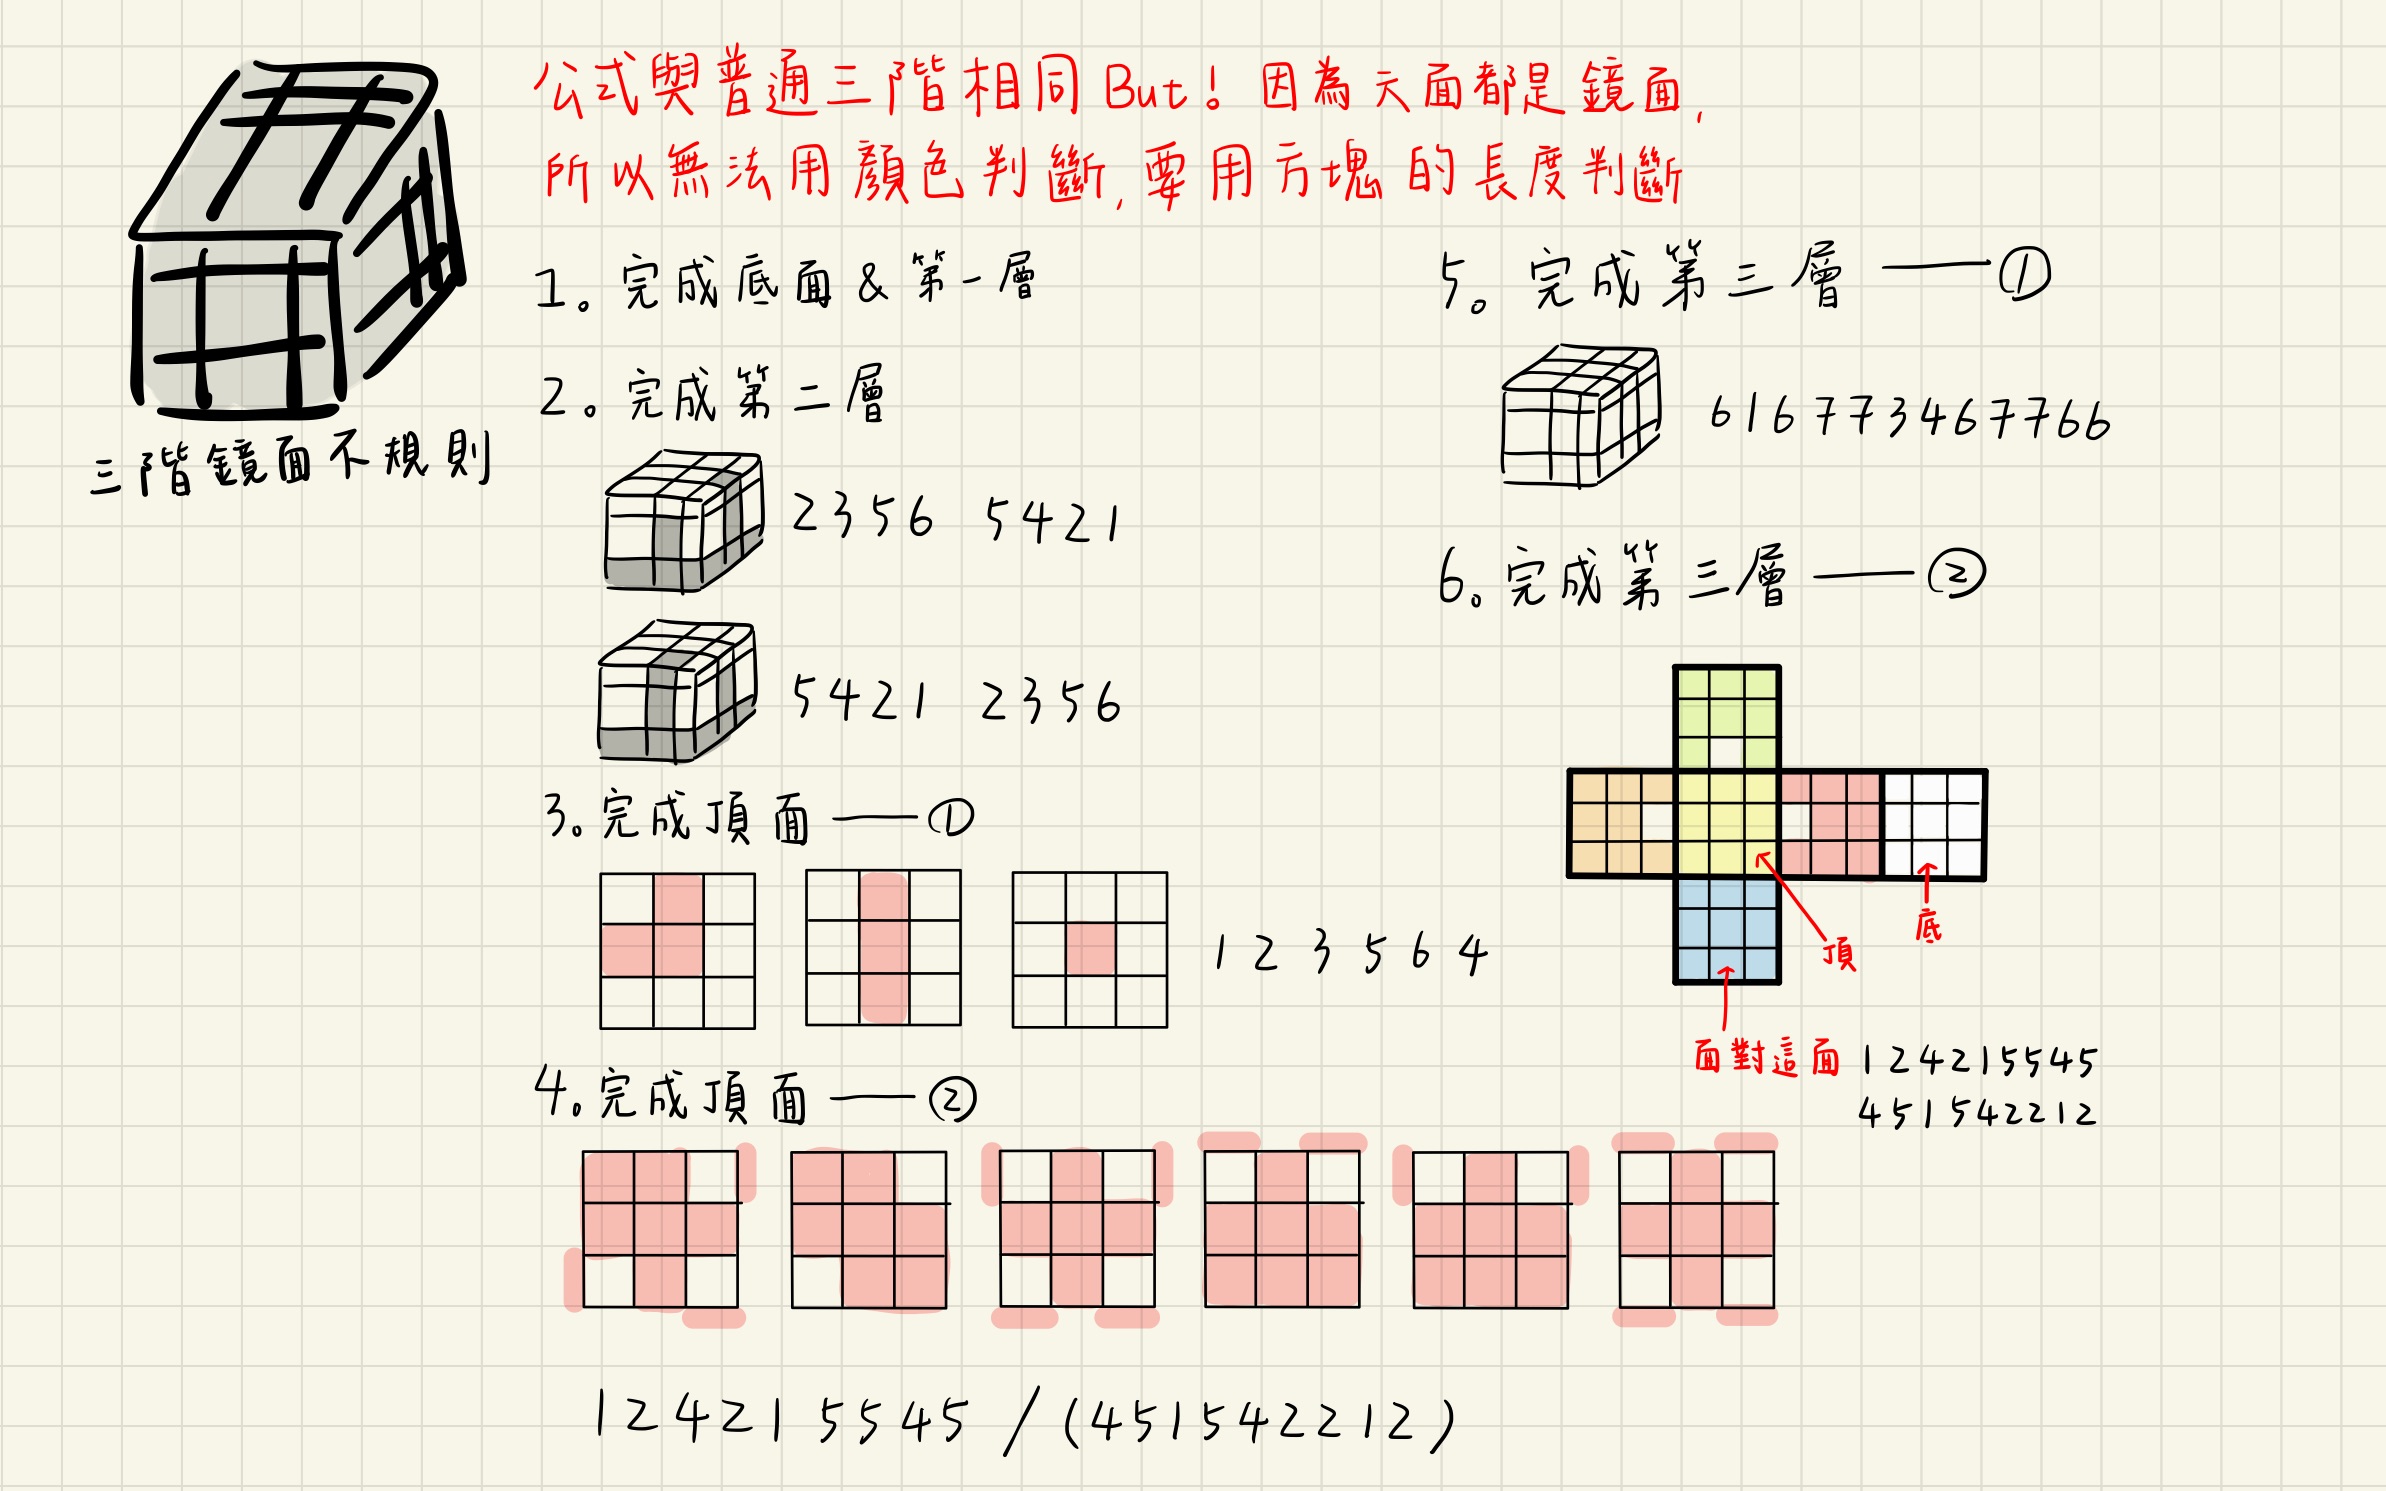 公式與普通三階相同 But! 因為六面都是鏡面,
所以無法用顏色判斷, 要用方塊的長度判斷
三階鏡面不規則
1。完成底面 & 第一層
2。完成第二層
2356 5421
5421 2356
3。完成頂面 —— ①
1 2 3 5 6 4
4。完成頂面 —— ②
124215545 / (451542212)
5。完成第三層 —— ①
616773467766
6。完成第三層 —— ②
底
頂
面對這面 124215545
451542212